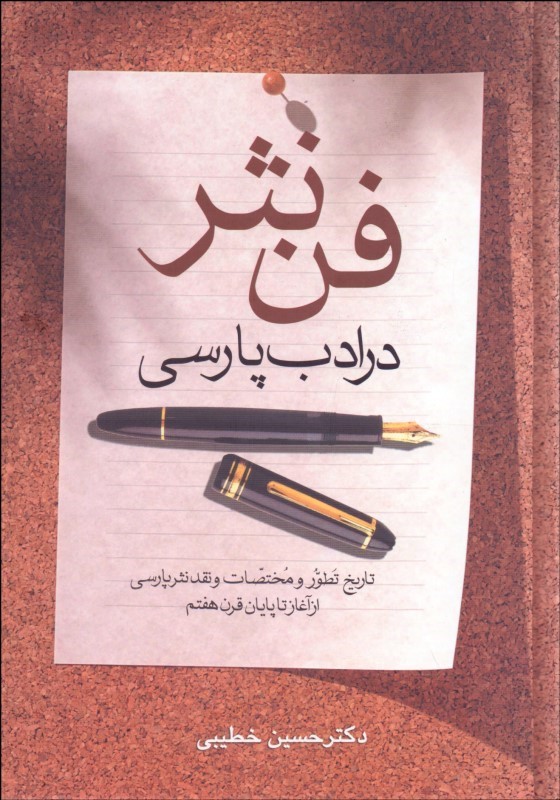 فن نثر
در ادب پارسی
تاریخ تَطَوُّر و مُختصّات و نقد نثر پارسی
از آغاز تا پایان قرن هفتم
دکتر حسین خطیبی